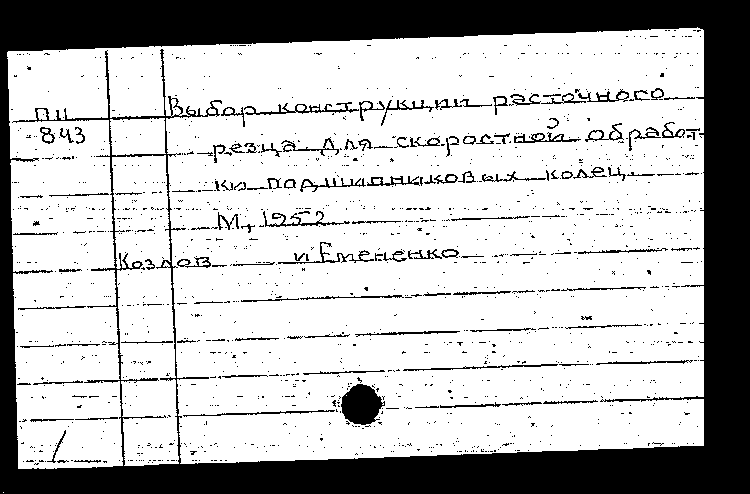 ПП Выбор конструкции расточного
843
резца для скоростной обработ-
ки подшипниковых колец.
М, 1952
Козлов и Емененко